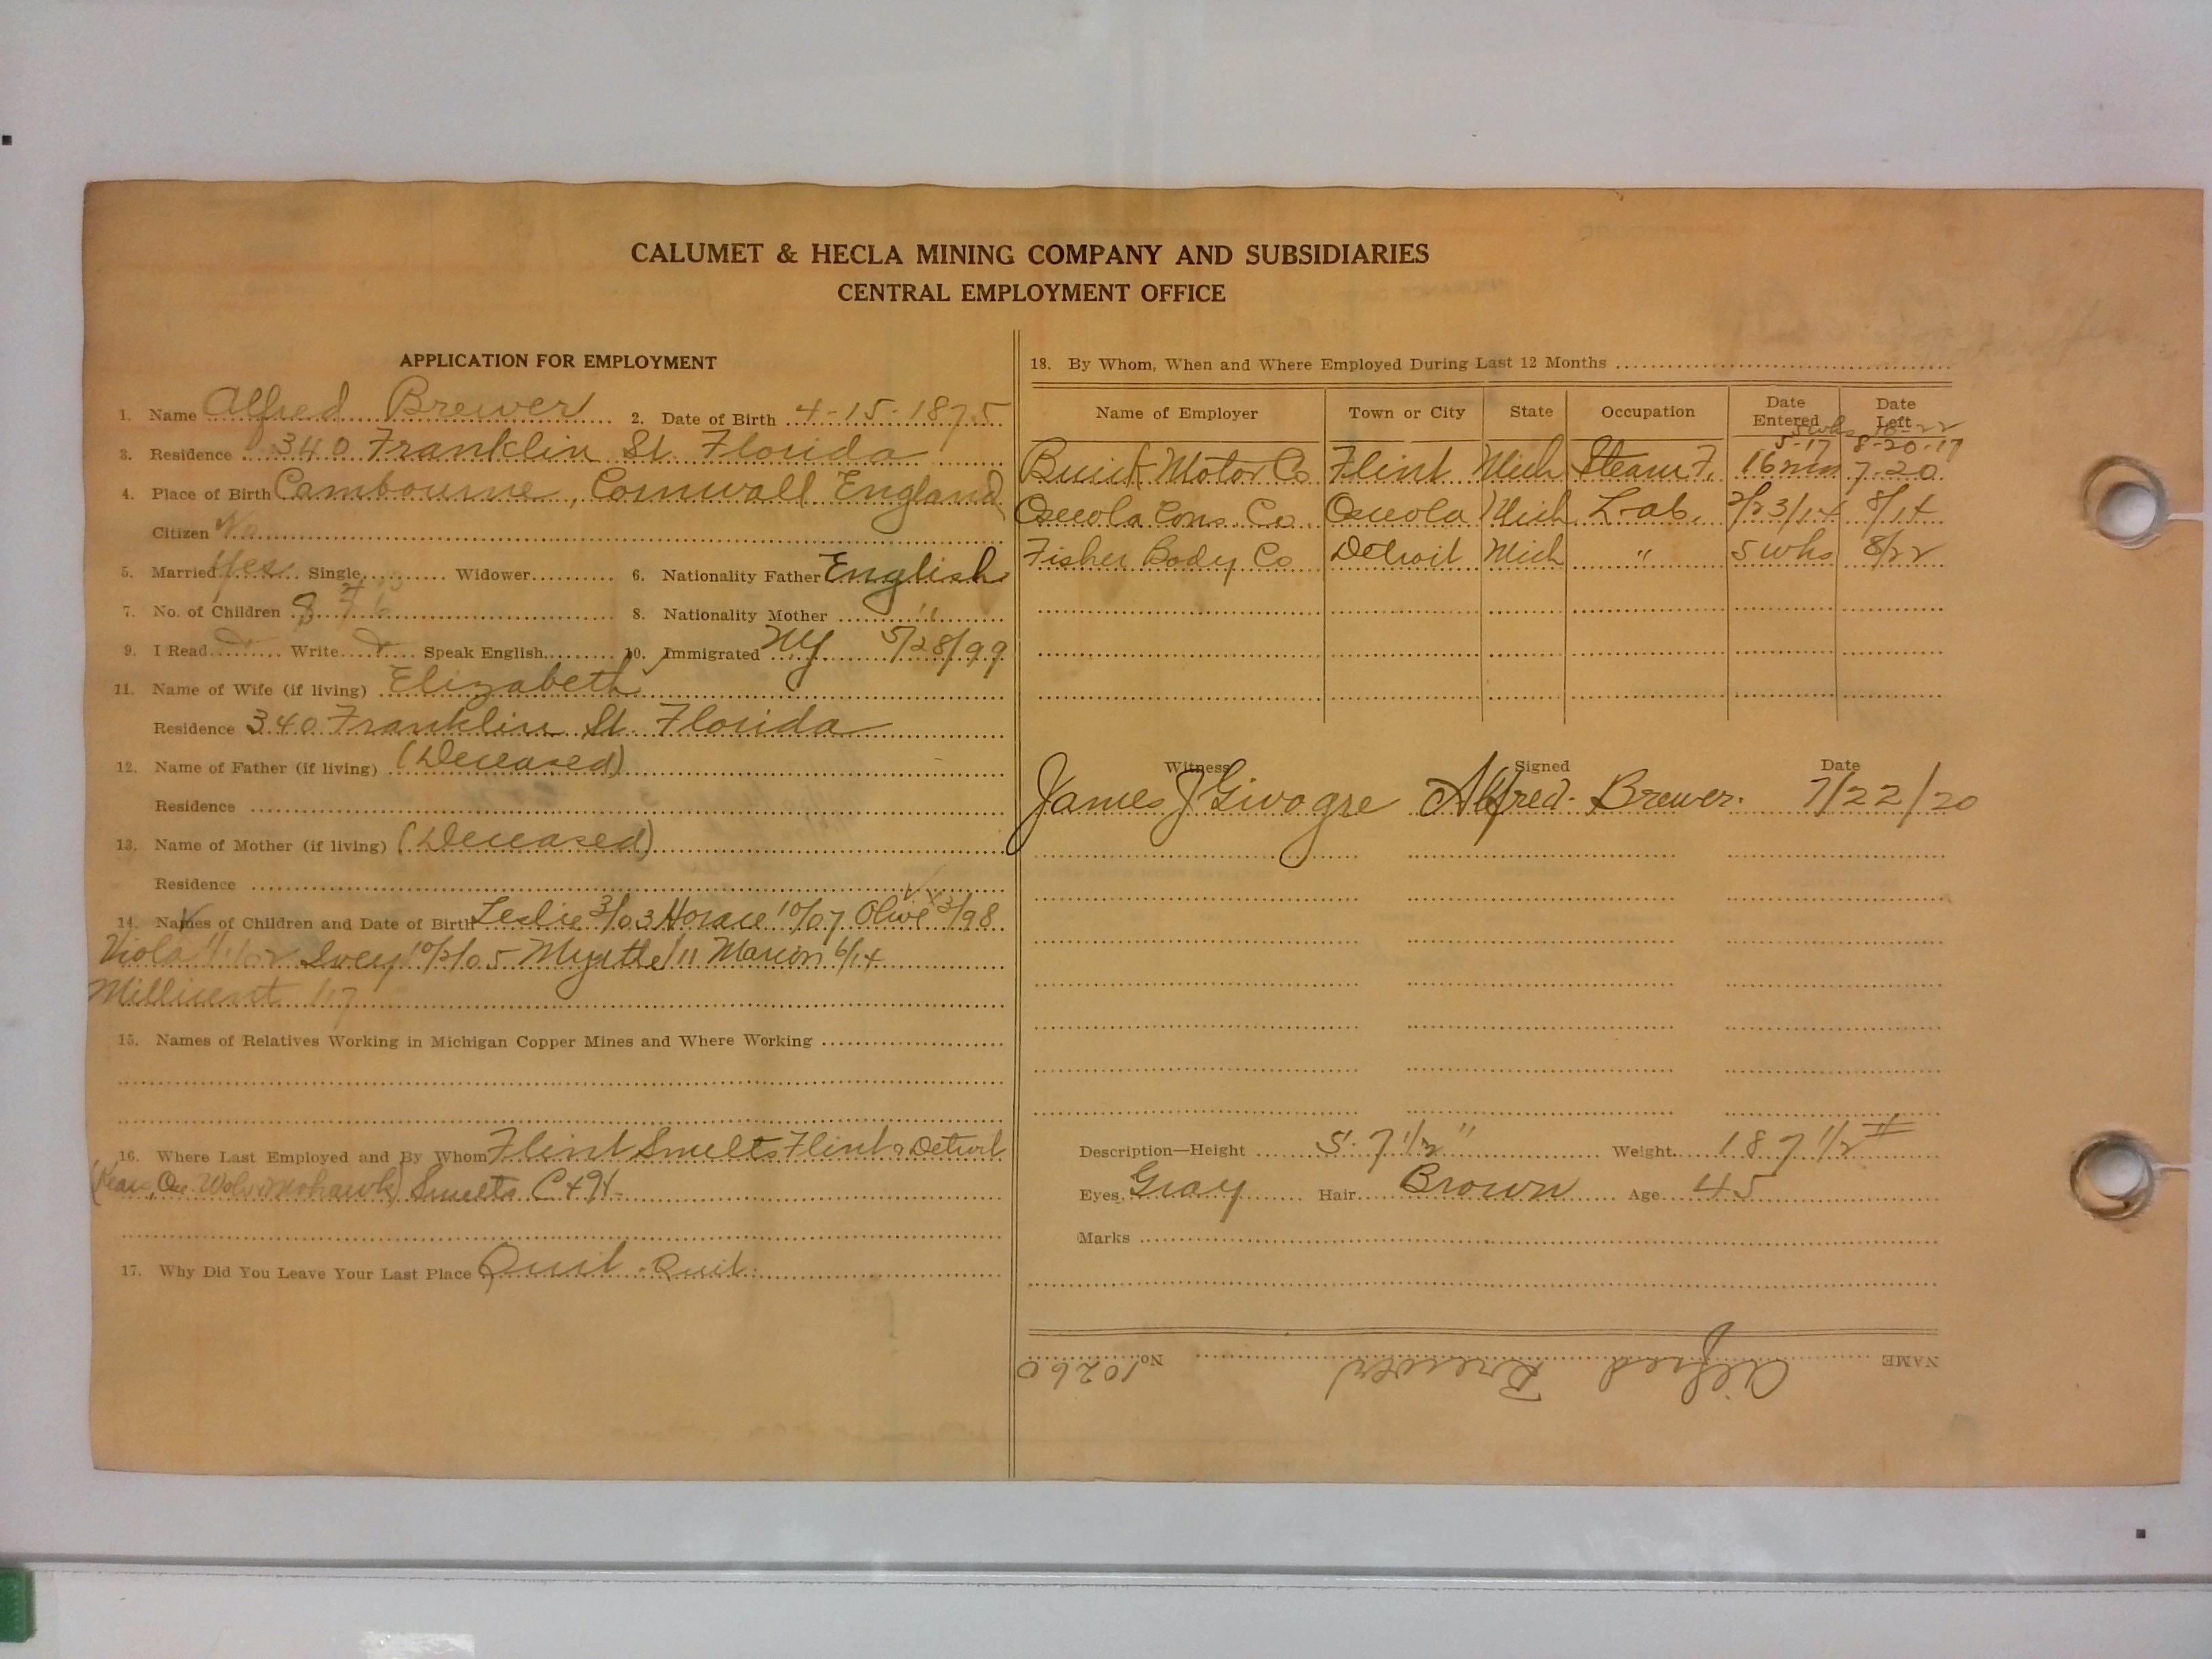 CALUMET & HECLA MINING COMPANY AND SUBSIDIARIES
CENTRAL EMPLOYMENT OFFICE
APPLICATION FOR EMPLOYMENT
1. Name Alfred Brewer 2. Date of Birth 4-15-1875
3. Residence 340 Franklin St. Florida
4. Place of Birth Cambourne, Cornwall England
Citizen No
5. Married Yes Single Widower 6. Nationality Father English
7. No. of Children 8 8. Nationality Mother "
9. I Read Write Speak English 10. Immigrated NY 5/28/99
11. Name of Wife (if living) Elizabeth
Residence 340 Franklin St. Florida
12. Name of Father (if living) (Deceased)
Residence
13. Name of Mother (if living) (Deceased)
Residence
14. Names of Children and Date of Birth Leslie 3/03 Horace 10/07 Olive 3/98
Viola Ivey 10/2/05 Myrtle /11 Marion 6/14
Millicent /17
15. Names of Relatives Working in Michigan Copper Mines and Where Working
16. Where Last Employed and By Whom Flint Smelts Flint & Detroit
Mohawk) Smelts C+H
17. Why Did You Leave Your Last Place Quit - Quit
18. By Whom, When and Where Employed During Last 12 Months
Name of Employer Town or City State Occupation Date Entered Date Left
5 wks 10-22
5-17 8-20-17
Buick Motor Co Flint Mich Steam F. 16 mn 7-20
Osceola Cons. Co. Osceola Mich Lab. 2/23/14 8/14
Fisher Body Co Detroit Mich " 5 wks 8/22
Witness Signed Date
James J Alfred Brewer. 7/22/20
Description—Height 5' 7 1/2" Weight 187 1/2 #
Eyes Gray Hair Brown Age 45
Marks
NAME Alfred Brewer No. 10260